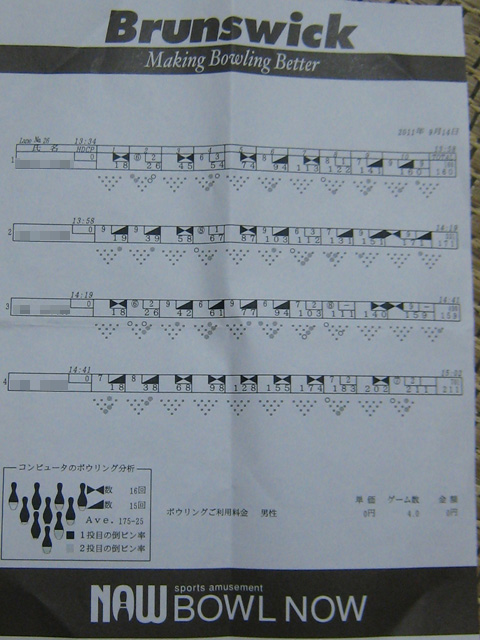 Brunswick
Making Bowling Better
2011年 9月14日
Lane No 26 13:34
氏名 HDCP
1 0 18 26 45 54 74 94 113 122 141 160 160
13:58
2 0 19 39 58 67 87 103 112 131 151 171
14:19 14:41
3 0 18 26 42 61 77 94 103 111 140 159 159
14:41 15:02
4 0 18 38 68 98 128 155 174 183 202 211 211
コンピュータのボウリング分析
数 16回
数 15回
Ave. 175-25
1投目の倒ピン率
2投目の倒ピン率
単価 ゲーム数 金額
ボウリングご利用料金 男性 0円 4.0 0円
NAW sports amusement
BOWL NOW